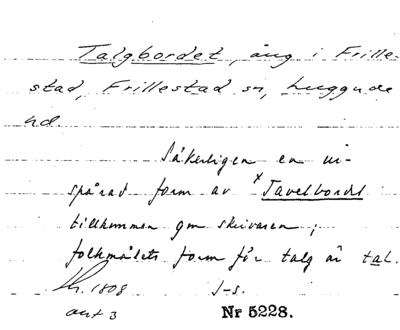 Talgbordet, äng i Frille-
stad, Frillestad sn, Luggude
hd.
Säkerligen en vi-
spårad form av ˣTavelbordet
tillkommen gm skrivaren;
folkmålets form för talg är tal.
Kr. 1808
akt 3
J-s.
Nr 5228.